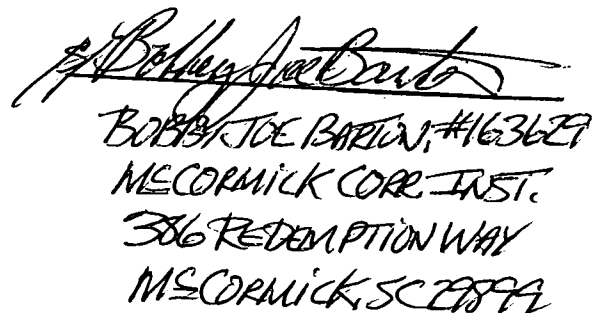 s/ Bobby Joe Barton
BOBBY JOE BARTON, #163629
McCORMICK CORR. INST.
386 REDEMPTION WAY
McCORMICK, SC 29899